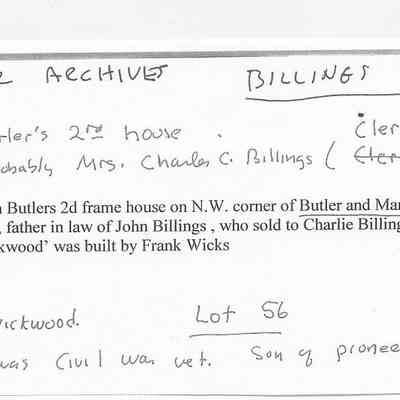 ARCHIVES BILLINGS
tler's 2nd house. Cler
obably Mrs. Charles C. Billings (
n Butlers 2d frame house on N.W. corner of Butler and Mar
, father in law of John Billings , who sold to Charlie Billing
kwood' was built by Frank Wicks
wickwood. Lot 56
was Civil War vet. Son of pionee